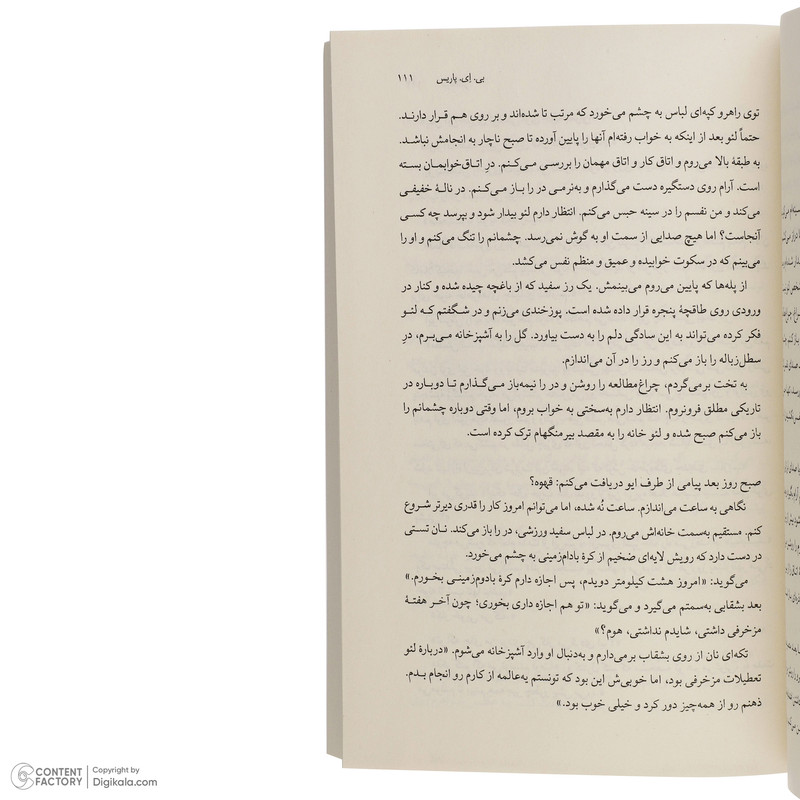 بی. اِی. پاریس ۱۱۱
توی راهرو کپه‌ای لباس به چشم می‌خورد که مرتب تا شده‌اند و بر روی هم قرار دارند.
حتماً لئو بعد از اینکه به خواب رفته‌ام آنها را پایین آورده تا صبح ناچار به انجامش نباشد.
به طبقهٔ بالا می‌روم و اتاق کار و اتاق مهمان را بررسی می‌کنم. درِ اتاق‌خوابمان بسته
است. آرام روی دستگیره دست می‌گذارم و به‌نرمی در را باز می‌کنم. در نالهٔ خفیفی
می‌کند و من نفسم را در سینه حبس می‌کنم. انتظار دارم لئو بیدار شود و بپرسد چه کسی
آنجاست؟ اما هیچ صدایی از سمت او به گوش نمی‌رسد. چشمانم را تنگ می‌کنم و او را
می‌بینم که در سکوت خوابیده و عمیق و منظم نفس می‌کشد.
از پله‌ها که پایین می‌روم می‌بینمش. یک رز سفید که از باغچه چیده شده و کنار در
ورودی روی طاقچهٔ پنجره قرار داده شده است. پوزخندی می‌زنم و در شگفتم که لئو
فکر کرده می‌تواند به این سادگی دلم را به دست بیاورد. گل را به آشپزخانه می‌برم، درِ
سطل‌زباله را باز می‌کنم و رز را در آن می‌اندازم.
به تخت برمی‌گردم، چراغ‌مطالعه را روشن و در را نیمه‌باز می‌گذارم تا دوباره در
تاریکی مطلق فرونروم. انتظار دارم به‌سختی به خواب بروم، اما وقتی دوباره چشمانم را
باز می‌کنم صبح شده و لئو خانه را به مقصد بیرمنگهام ترک کرده است.
صبح روز بعد پیامی از طرف ایو دریافت می‌کنم: قهوه؟
نگاهی به ساعت می‌اندازم. ساعت نُه شده، اما می‌توانم امروز کار را قدری دیرتر شروع
کنم. مستقیم به‌سمت خانه‌اش می‌روم. در لباس سفید ورزشی، در را باز می‌کند. نان تستی
در دست دارد که رویش لایه‌ای ضخیم از کرهٔ بادام‌زمینی به چشم می‌خورد.
می‌گوید: «امروز هشت کیلومتر دویدم، پس اجازه دارم کرهٔ بادوم‌زمینی بخورم.»
بعد بشقابی به‌سمتم می‌گیرد و می‌گوید: «تو هم اجازه داری بخوری؛ چون آخر هفتهٔ
مزخرفی داشتی، شایدم نداشتی، هوم؟»
تکه‌ای نان از روی بشقاب برمی‌دارم و به‌دنبال او وارد آشپزخانه می‌شوم. «دربارهٔ لئو
تعطیلات مزخرفی بود، اما خوبی‌ش این بود که تونستم یه‌عالمه از کارم رو انجام بدم.
ذهنم رو از همه‌چیز دور کرد و خیلی خوب بود.»
CONTENT FACTORY
Copyright by
Digikala.com